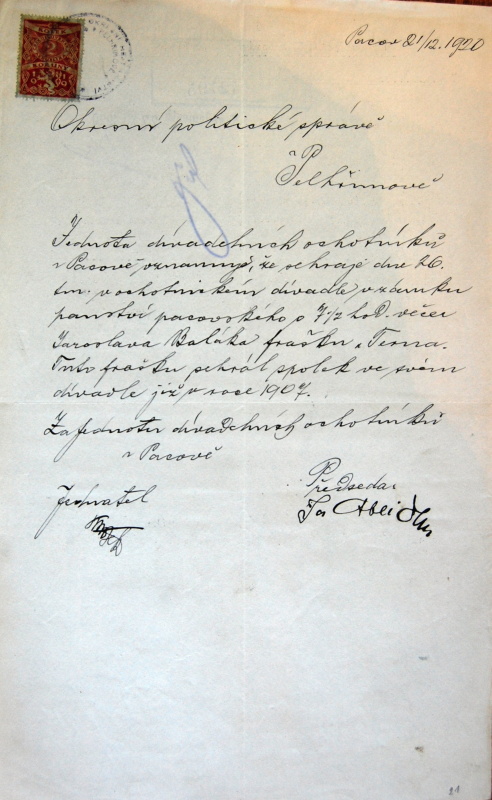 Pacov 21/12. 1920
Okresní politické správě
v Pelhřimově
Jednota divadelních ochotníků
v Pacově oznamuje, že sehraje dne 26.
tm. v ochotnickém divadle v zámku
panství pacovského o 7 1/2 hod. večer
Jaroslava Baláka frašku "Terna.
Tuto frašku sehrál spolek ve svém
divadle již v roce 1907.
Za Jednotu divadelních ochotníků
v Pacově
Předseda:
Jednatel
21